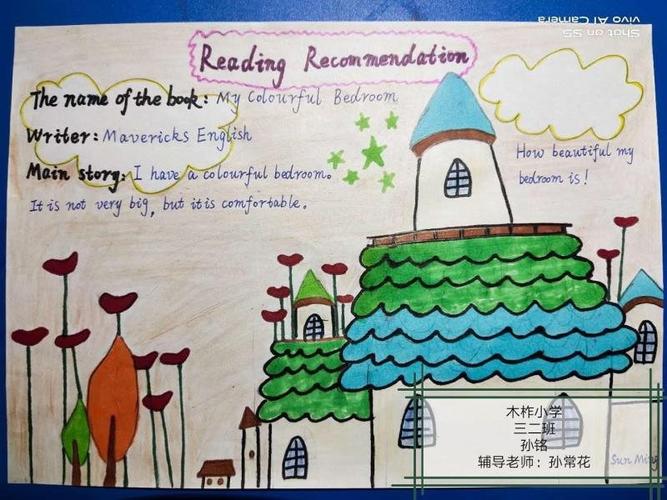 Shot on S5
vivo AI Camera
Reading Recommendation
The name of the book: My Colourful Bedroom
Writer: Mavericks English
Main story: I have a colourful bedroom.
It is not very big, but it is comfortable.
How beautiful my
bedroom is!
木柞小学
三二班
孙铭
辅导老师：孙常花
Sun Ming